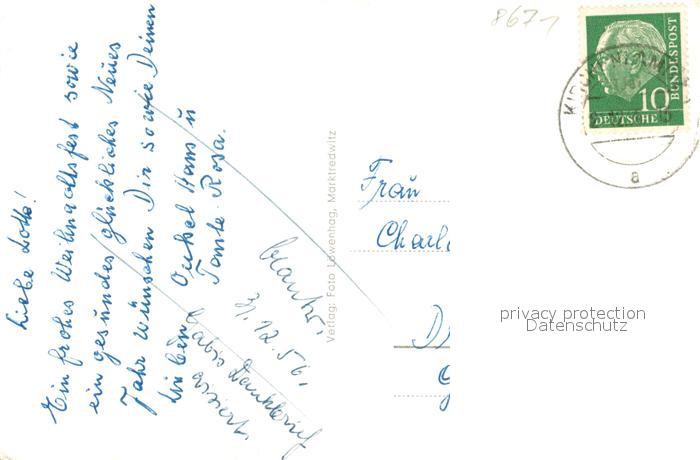 Liebe Lotte!
Ein frohes Weihnachtsfest sowie
ein gesundes glückliches Neues
Jahr wünschen Dir sowie Deinen
Lieben
Onkel Hans u
Tante Rosa.
31.12.56.
Verlag: Foto Löwenhag, Marktredwitz
8671
Frau
Charl
KIRCHENLAM
a
10
DEUTSCHE
BUNDESPOST
privacy protection
Datenschutz